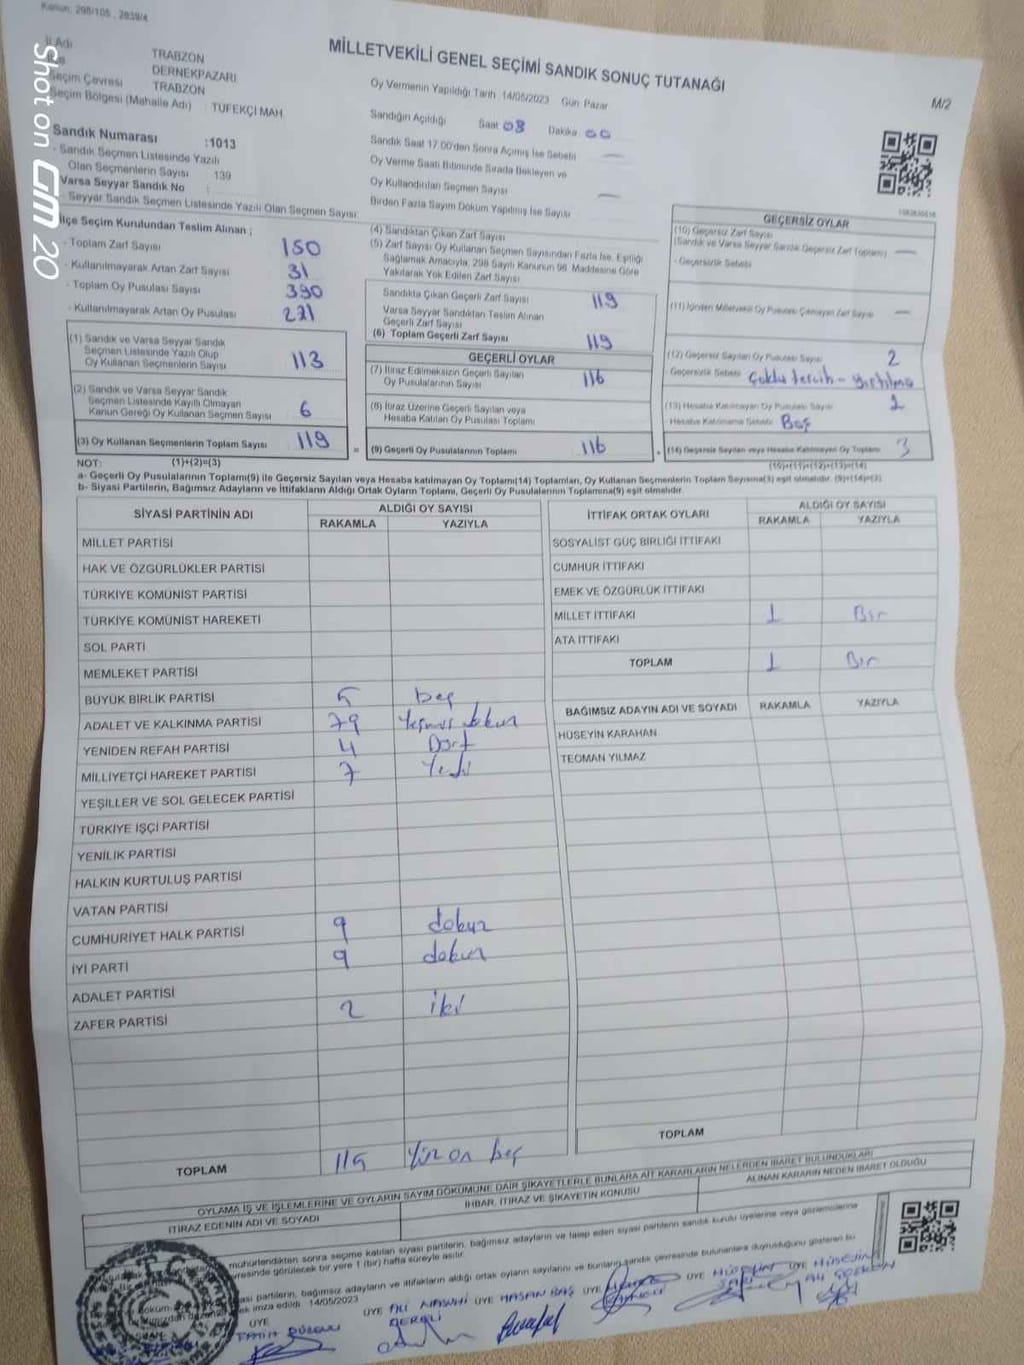 Kanun: 298/105, 2839/4
MİLLETVEKİLİ GENEL SEÇİMİ SANDIK SONUÇ TUTANAĞI
M/2
İl Adı TRABZON
DERNEKPAZARI
Seçim Çevresi TRABZON
Seçim Bölgesi (Mahalle Adı) : TÜFEKÇİ MAH.
Sandık Numarası :1013
- Sandık Seçmen Listesinde Yazılı
Olan Seçmenlerin Sayısı 139
Varsa Seyyar Sandık No :
- Seyyar Sandık Seçmen Listesinde Yazılı Olan Seçmen Sayısı
Oy Vermenin Yapıldığı Tarih :14/05/2023 Gün Pazar
Sandığın Açıldığı Saat 08 Dakika 00
Sandık Saat 17.00'den Sonra Açılmış İse Sebebi —
Oy Verme Saati Bitiminde Sırada Bekleyen ve
Oy Kullandırılan Seçmen Sayısı —
Birden Fazla Sayım Döküm Yapılmış İse Sayısı
İlçe Seçim Kurulundan Teslim Alınan ;
- Toplam Zarf Sayısı 150
- Kullanılmayarak Artan Zarf Sayısı 31
- Toplam Oy Pusulası Sayısı 390
- Kullanılmayarak Artan Oy Pusulası 271
(1) Sandık ve Varsa Seyyar Sandık
Seçmen Listesinde Yazılı Olup
Oy Kullanan Seçmenlerin Sayısı 113
(2) Sandık ve Varsa Seyyar Sandık
Seçmen Listesinde Kayıtlı Olmayan
Kanun Gereği Oy Kullanan Seçmen Sayısı 6
(3) Oy Kullanan Seçmenlerin Toplam Sayısı 119
(4) Sandıktan Çıkan Zarf Sayısı
(5) Zarf Sayısı Oy Kullanan Seçmen Sayısından Fazla İse, Eşitliği
Sağlamak Amacıyla, 298 Sayılı Kanunun 98. Maddesine Göre
Yakılarak Yok Edilen Zarf Sayısı
Sandıkta Çıkan Geçerli Zarf Sayısı 119
Varsa Seyyar Sandıktan Teslim Alınan
Geçerli Zarf Sayısı
(6) Toplam Geçerli Zarf Sayısı 119
GEÇERLİ OYLAR
(7) İtiraz Edilmeksizin Geçerli Sayılan
Oy Pusulalarının Sayısı 116
(8) İtiraz Üzerine Geçerli Sayılan veya
Hesaba Katılan Oy Pusulası Toplamı
= (9) Geçerli Oy Pusulalarının Toplamı 116
GEÇERSİZ OYLAR
(10) Geçersiz Zarf Sayısı
(Sandık ve Varsa Seyyar Sandık Geçersiz Zarf Toplamı) —
- Geçersizlik Sebebi
(11) İçinden Milletvekili Oy Pusulası Çıkmayan Zarf Sayısı —
(12) Geçersiz Sayılan Oy Pusulası Sayısı 2
Geçersizlik Sebebi Çoklu tercih - yırtılma
(13) Hesaba Katılmayan Oy Pusulası Sayısı 1
- Hesaba Katılmama Sebebi Boş
+ (14) Geçersiz Sayılan veya Hesaba Katılmayan Oy Toplamı 3
NOT: (1)+(2)=(3)
(10)+(11)+(12)+(13)=(14)
a- Geçerli Oy Pusulalarının Toplamı(9) ile Geçersiz Sayılan veya Hesaba katılmayan Oy Toplamı(14) Toplamları, Oy Kullanan Seçmenlerin Toplam Sayısına(3) eşit olmalıdır. (9)+(14)=(3)
b- Siyasi Partilerin, Bağımsız Adayların ve İttifakların Aldığı Ortak Oyların Toplamı, Geçerli Oy Pusulalarının Toplamına(9) eşit olmalıdır.
SİYASİ PARTİNİN ADI ALDIĞI OY SAYISI
RAKAMLA YAZIYLA
MİLLET PARTİSİ
HAK VE ÖZGÜRLÜKLER PARTİSİ
TÜRKİYE KOMÜNİST PARTİSİ
TÜRKİYE KOMÜNİST HAREKETİ
SOL PARTİ
MEMLEKET PARTİSİ
BÜYÜK BİRLİK PARTİSİ 5 beş
ADALET VE KALKINMA PARTİSİ 79 Yetmiş dokuz
YENİDEN REFAH PARTİSİ 4 Dört
MİLLİYETÇİ HAREKET PARTİSİ 7 Yedi
YEŞİLLER VE SOL GELECEK PARTİSİ
TÜRKİYE İŞÇİ PARTİSİ
YENİLİK PARTİSİ
HALKIN KURTULUŞ PARTİSİ
VATAN PARTİSİ
CUMHURİYET HALK PARTİSİ 9 dokuz
İYİ PARTİ 9 dokuz
ADALET PARTİSİ
ZAFER PARTİSİ 2 iki
TOPLAM 115 Yüz on beş
İTTİFAK ORTAK OYLARI ALDIĞI OY SAYISI
RAKAMLA YAZIYLA
SOSYALİST GÜÇ BİRLİĞİ İTTİFAKI
CUMHUR İTTİFAKI
EMEK VE ÖZGÜRLÜK İTTİFAKI
MİLLET İTTİFAKI 1 Bir
ATA İTTİFAKI
TOPLAM 1 Bir
BAĞIMSIZ ADAYIN ADI VE SOYADI RAKAMLA YAZIYLA
HÜSEYİN KARAHAN
TEOMAN YILMAZ
TOPLAM
OYLAMA İŞ VE İŞLEMLERİNE VE OYLARIN SAYIM DÖKÜMÜNE DAİR ŞİKAYETLERLE BUNLARA AİT KARARLARIN NELERDEN İBARET BULUNDUKLARI
İTİRAZ EDENİN ADI VE SOYADI İHBAR, İTİRAZ VE ŞİKAYETİN KONUSU ALINAN KARARIN NEDEN İBARET OLDUĞU
mühürlendikten sonra seçime katılan siyasi partilerin, bağımsız adayların ve talep eden siyasi partilerin sandık kurulu üyelerine veya gözlemcilerine
görülecek bir yere 1 (bir) hafta süreyle asılır.
partilerin, bağımsız adayların ve ittifakların aldığı ortak oyların sayılarını ve bunların sandık çevresinde bulunanlara duyrulduğunu gösteren bu
imza edildi 14/05/2023
ÜYE ÜYE ALİ ÜYE HASAN BAŞ ÜYE ÜYE HÜSEYİN ÜYE HÜSEYİN
FATİH ALİ
T.C.
Shot on GM 20